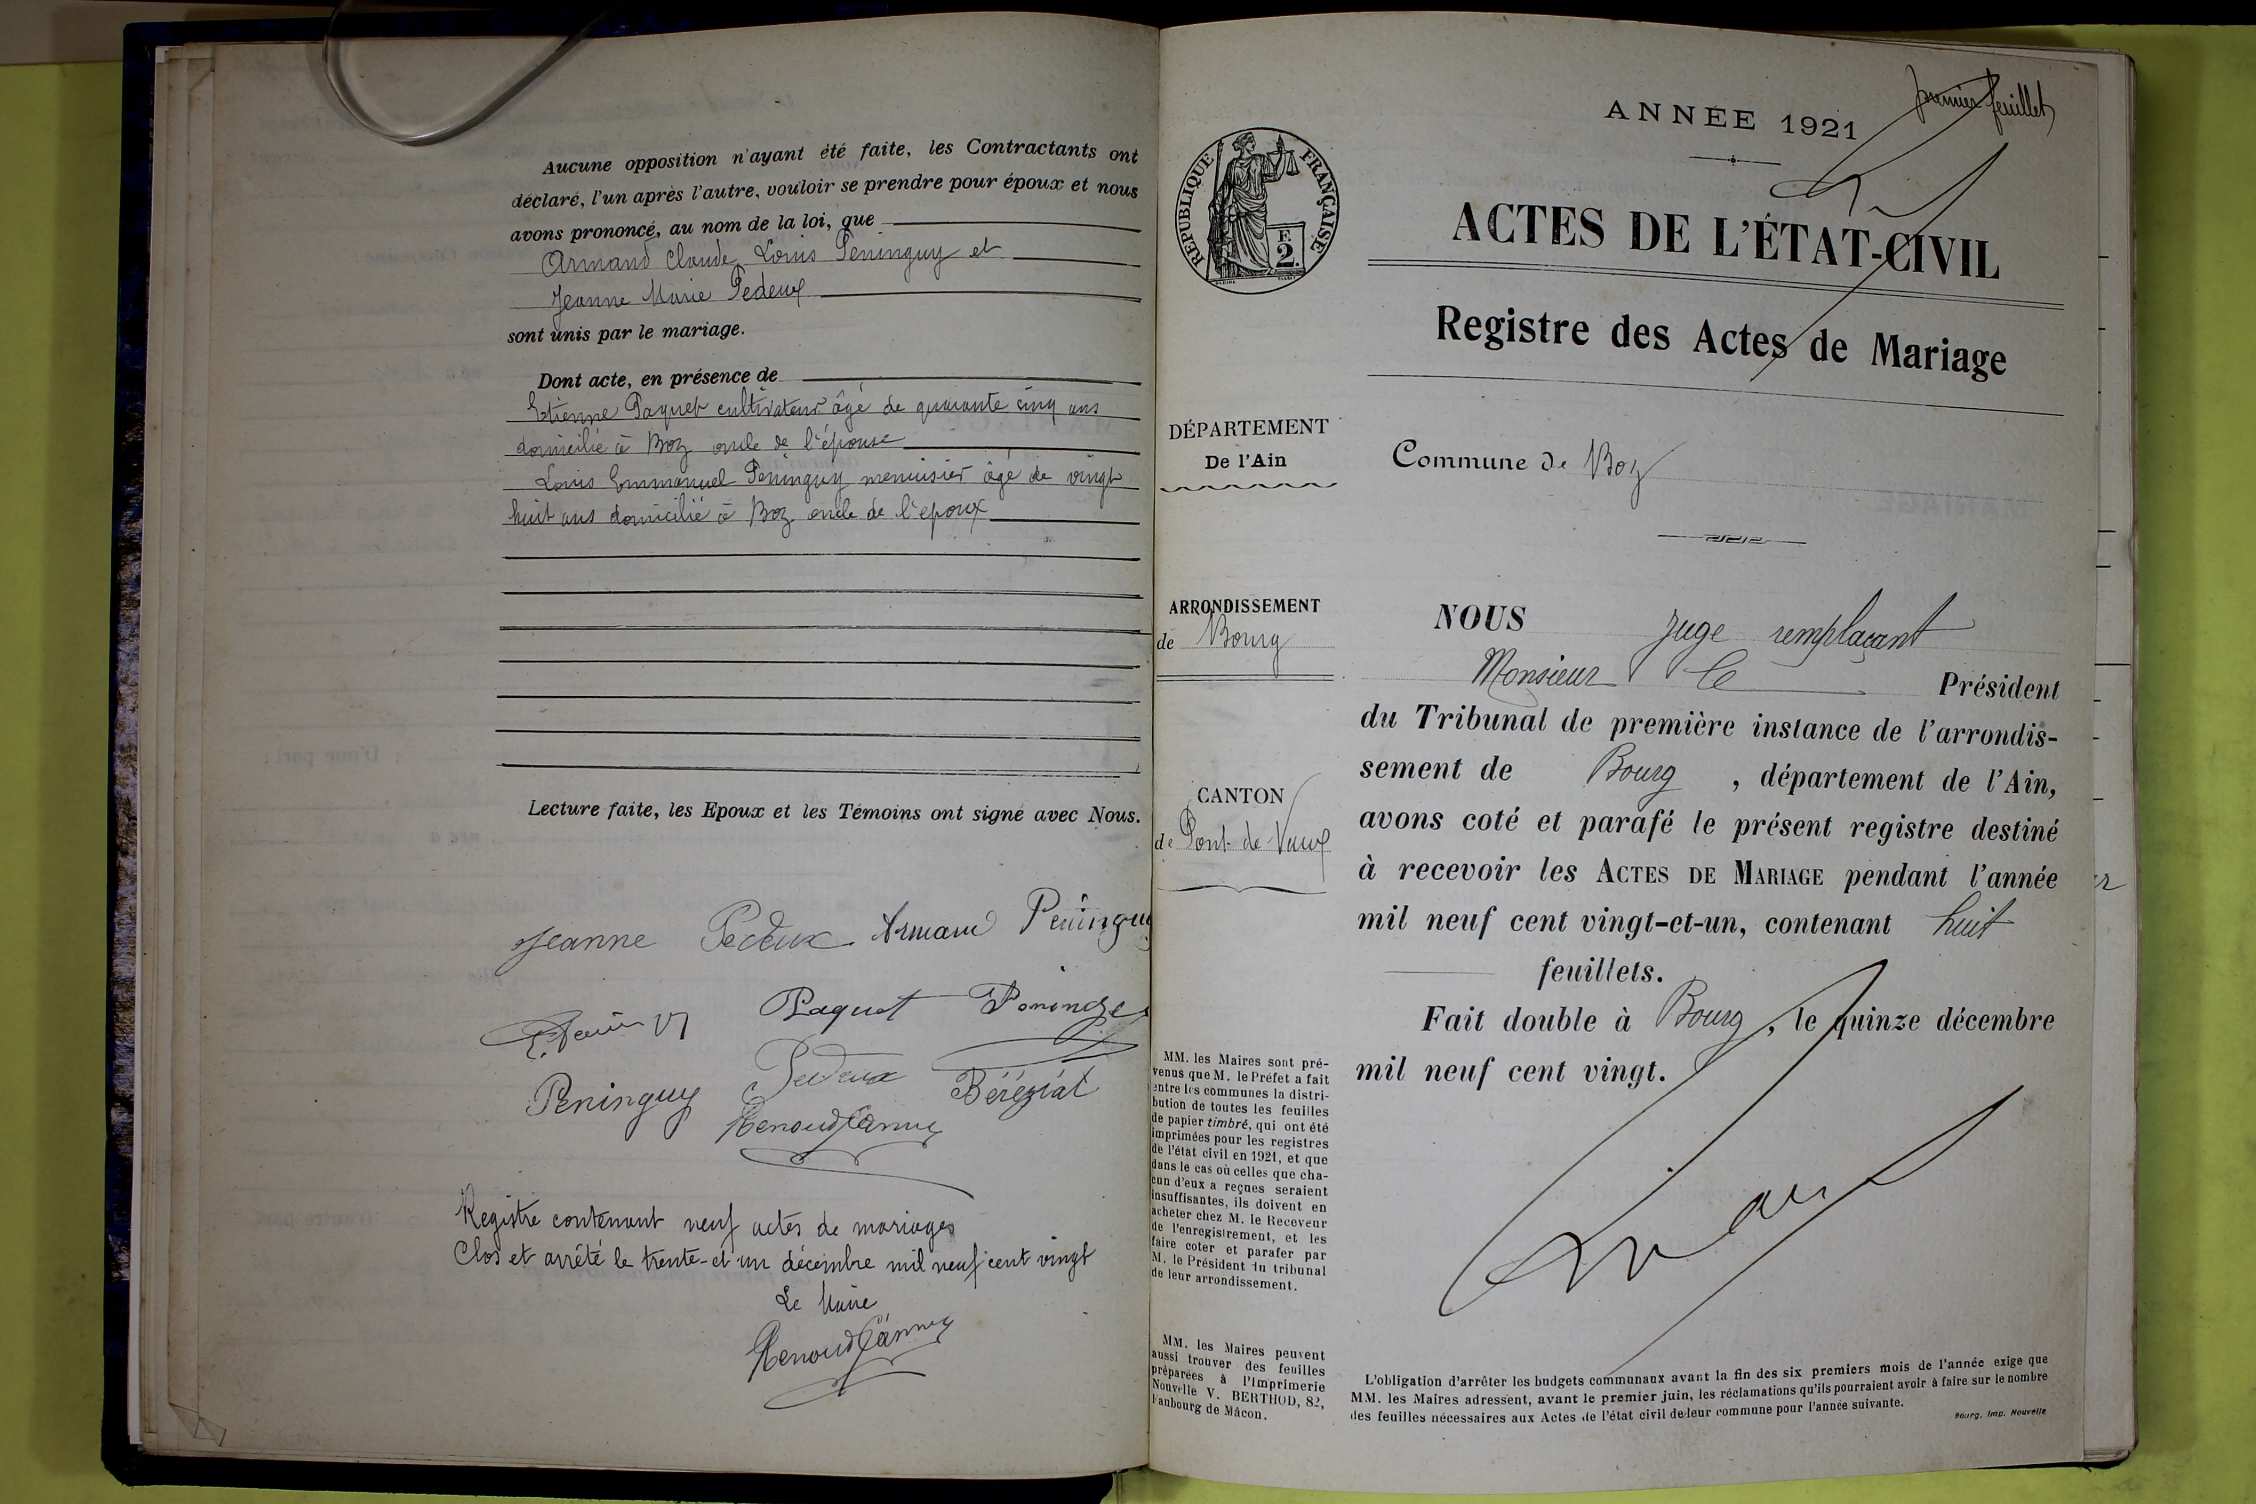 Aucune opposition n'ayant été faite, les Contractants ont
déclaré, l'un après l'autre, vouloir se prendre pour époux et nous
avons prononcé, au nom de la loi, que
Armand Claude Louis Peninguy et
Jeanne Marie Pedeux
sont unis par le mariage.
Dont acte, en présence de
Etienne Paquet cultivateur âgé de quarante cinq ans
domicilié à Boz oncle de l'épouse
Louis Emmanuel Peninguy menuisier âgé de vingt
huit ans domicilié à Boz oncle de l'epoux
Lecture faite, les Epoux et les Témoins ont signé avec Nous.
Jeanne Pedeux Armand Peninguy
Paquet
Peninguy Pedeux Béréziat
Renoud Cannu
Registre contenant neuf actes de mariages
Clos et arrêté le trente-et un décembre mil neuf cent vingt
Le Maire
premier feuillet
ANNÉE 1921
RÉPUBLIQUE FRANÇAISE
F.
2.
ACTES DE L'ÉTAT-CIVIL
Registre des Actes de Mariage
DÉPARTEMENT
De l'Ain
Commune de Boz
ARRONDISSEMENT
de Bourg
CANTON
de Pont-de Vaux
MM. les Maires sont pré-
venus que M. le Préfet a fait
entre les communes la distri-
bution de toutes les feuilles
de papier timbré, qui ont été
imprimées pour les registres
de l'état civil en 1921, et que
dans le cas où celles que cha-
cun d'eux a reçues seraient
insuffisantes, ils doivent en
acheter chez M. le Receveur
de l'enregistrement, et les
faire coter et parafer par
M. le Président du tribunal
de leur arrondissement.
MM. les Maires peuvent
aussi trouver des feuilles
préparées à l'Imprimerie
Nouvelle V. BERTHOD, 82,
Faubourg de Mâcon.
NOUS Juge remplaçant
Monsieur le Président
du Tribunal de première instance de l'arrondis-
sement de Bourg, département de l'Ain,
avons coté et parafé le présent registre destiné
à recevoir les ACTES DE MARIAGE pendant l'année
mil neuf cent vingt-et-un, contenant huit
feuillets.
Fait double à Bourg, le quinze décembre
mil neuf cent vingt.
L'obligation d'arrêter les budgets communaux avant la fin des six premiers mois de l'année exige que
MM. les Maires adressent, avant le premier juin, les réclamations qu'ils pourraient avoir à faire sur le nombre
des feuilles nécessaires aux Actes de l'état civil de leur commune pour l'année suivante.
Bourg, Imp. Nouvelle